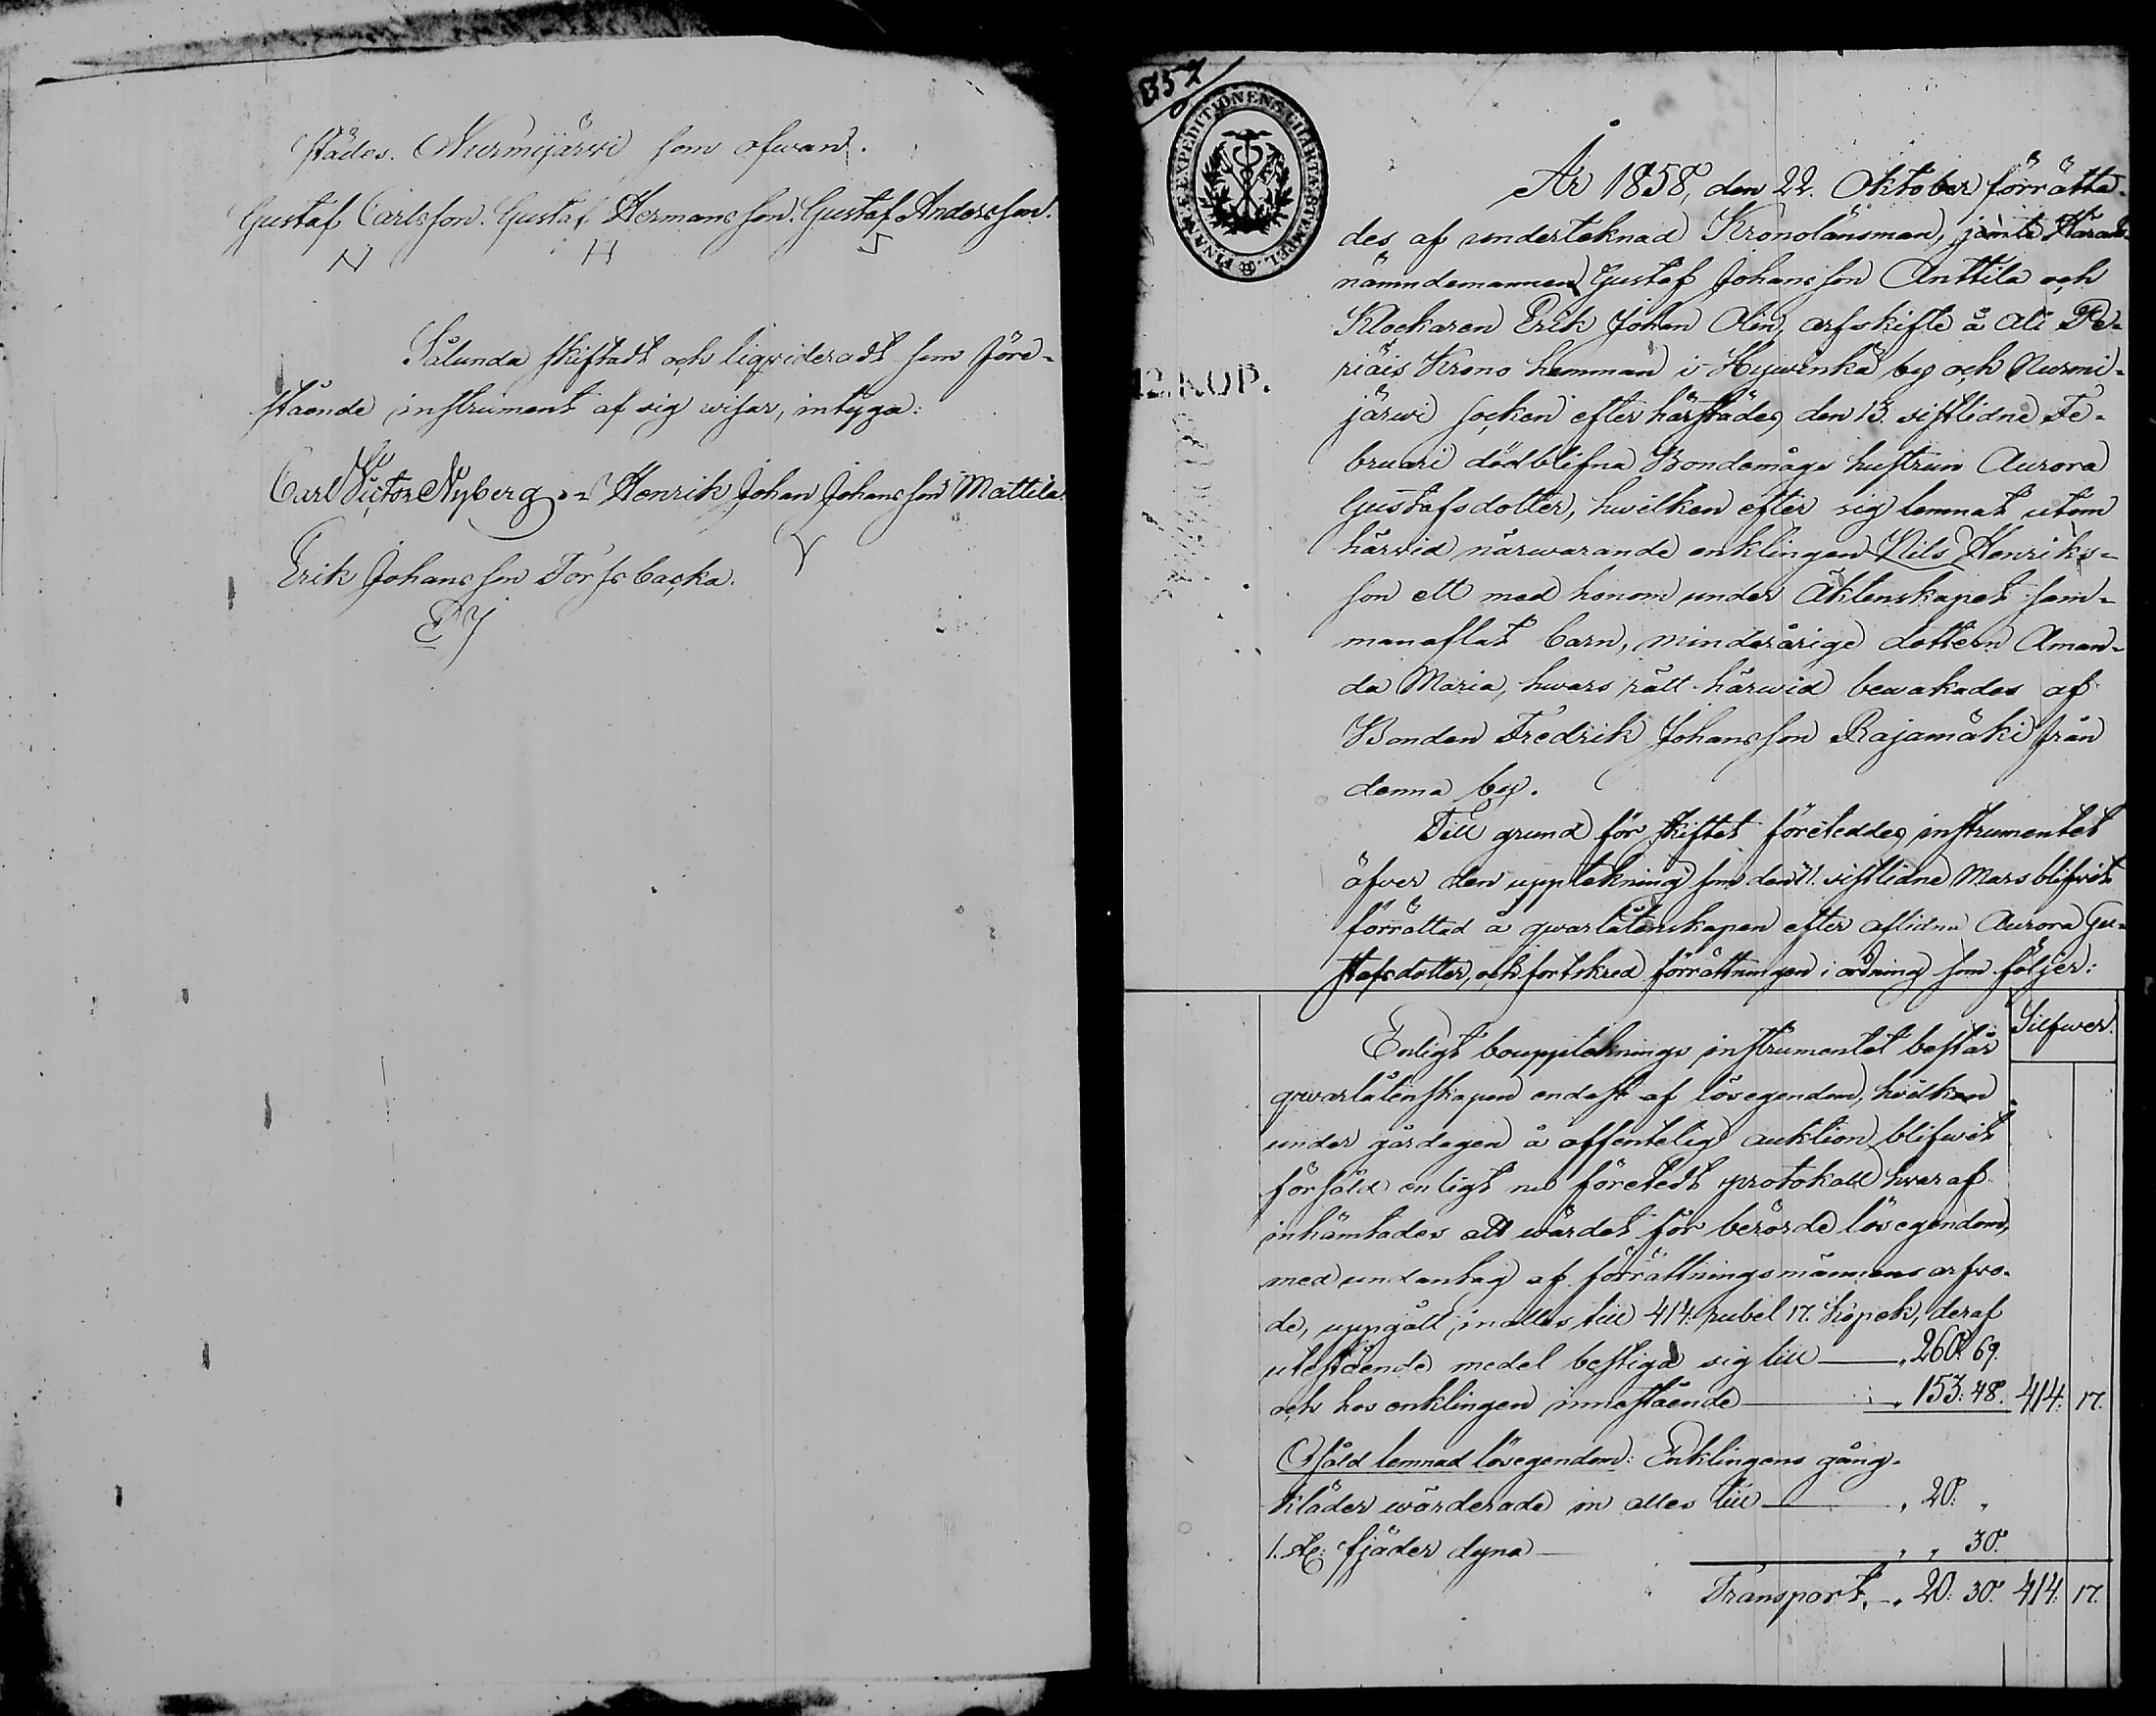 städes. Nurmijärwi som ofwan.
Gustaf Carlsson. Gustaf Hermansson. Gustaf Andersson.
Sålunda skiftadt och liqvideradt som före-
stående instrument af sig wisar, intyga:
Carl Victor Nyberg Henrik Johan Johansson Mattila
Erik Johansson Forssbacka.
EJ
857
FINANSEXPEDITIONENS CHARTÆ STEMPEL.
12. KOP.
År 1858, den 22. Oktober förrätta-
des af undertecknad Kronolänsman, jämte Härads-
nämndemannen Gustaf Johansson Anttila och
Klockaren Erik Johan Olin, arfskifte å Ali Pe-
riäis Krono hemman i Hywinkä by och Nurmi-
järwi socken efter härstädes den 13. sistlidne Fe-
bruari dödblifna Bondemåge hustrun Aurora
Gustafsdotter, hwilken efter sig lemnat utom
härwid närwarande enklingen Nils Henriks-
son ett med honom under Äktenskapet sam-
manaflat barn, minderårige dottern Aman-
da Maria, hwars rätt härwid bewakades af
Bonden Fredrik Johansson Rajamäki från
denna by.
Till grund för skiftet företeddes instrumentet
öfver den uppteckning som den 11. sistlidne Mars blifwit
förrättad å qwarlåtenskapen efter aflidna Aurora Gu-
stafsdotter, och fortskred förrättningen i ordning som följer:
Silfwer.
Enligt bouppteknings instrumentet består
qwarlåtenskapen endast af lösegendom, hwilken
under gårdagen å offentelig auktion blifwit
försåld enligt nu företedt protokoll hwaraf
inhämtades att wärdet för berörde lösegendom,
med undantag af förrättningsmännens arfwo-
de, uppgått inalles till 414. rubel 17. kopek, deraf
utestående medel bestiga sig till 260. 69.
och hos enklingen innestående 153: 48. 414: 17.
Osåld lemnad lösegendom: Enklingens gång-
kläder wärderade in alles till 20:
1. st: fjäder dyna 30.
Transport. 20: 30. 414: 17.